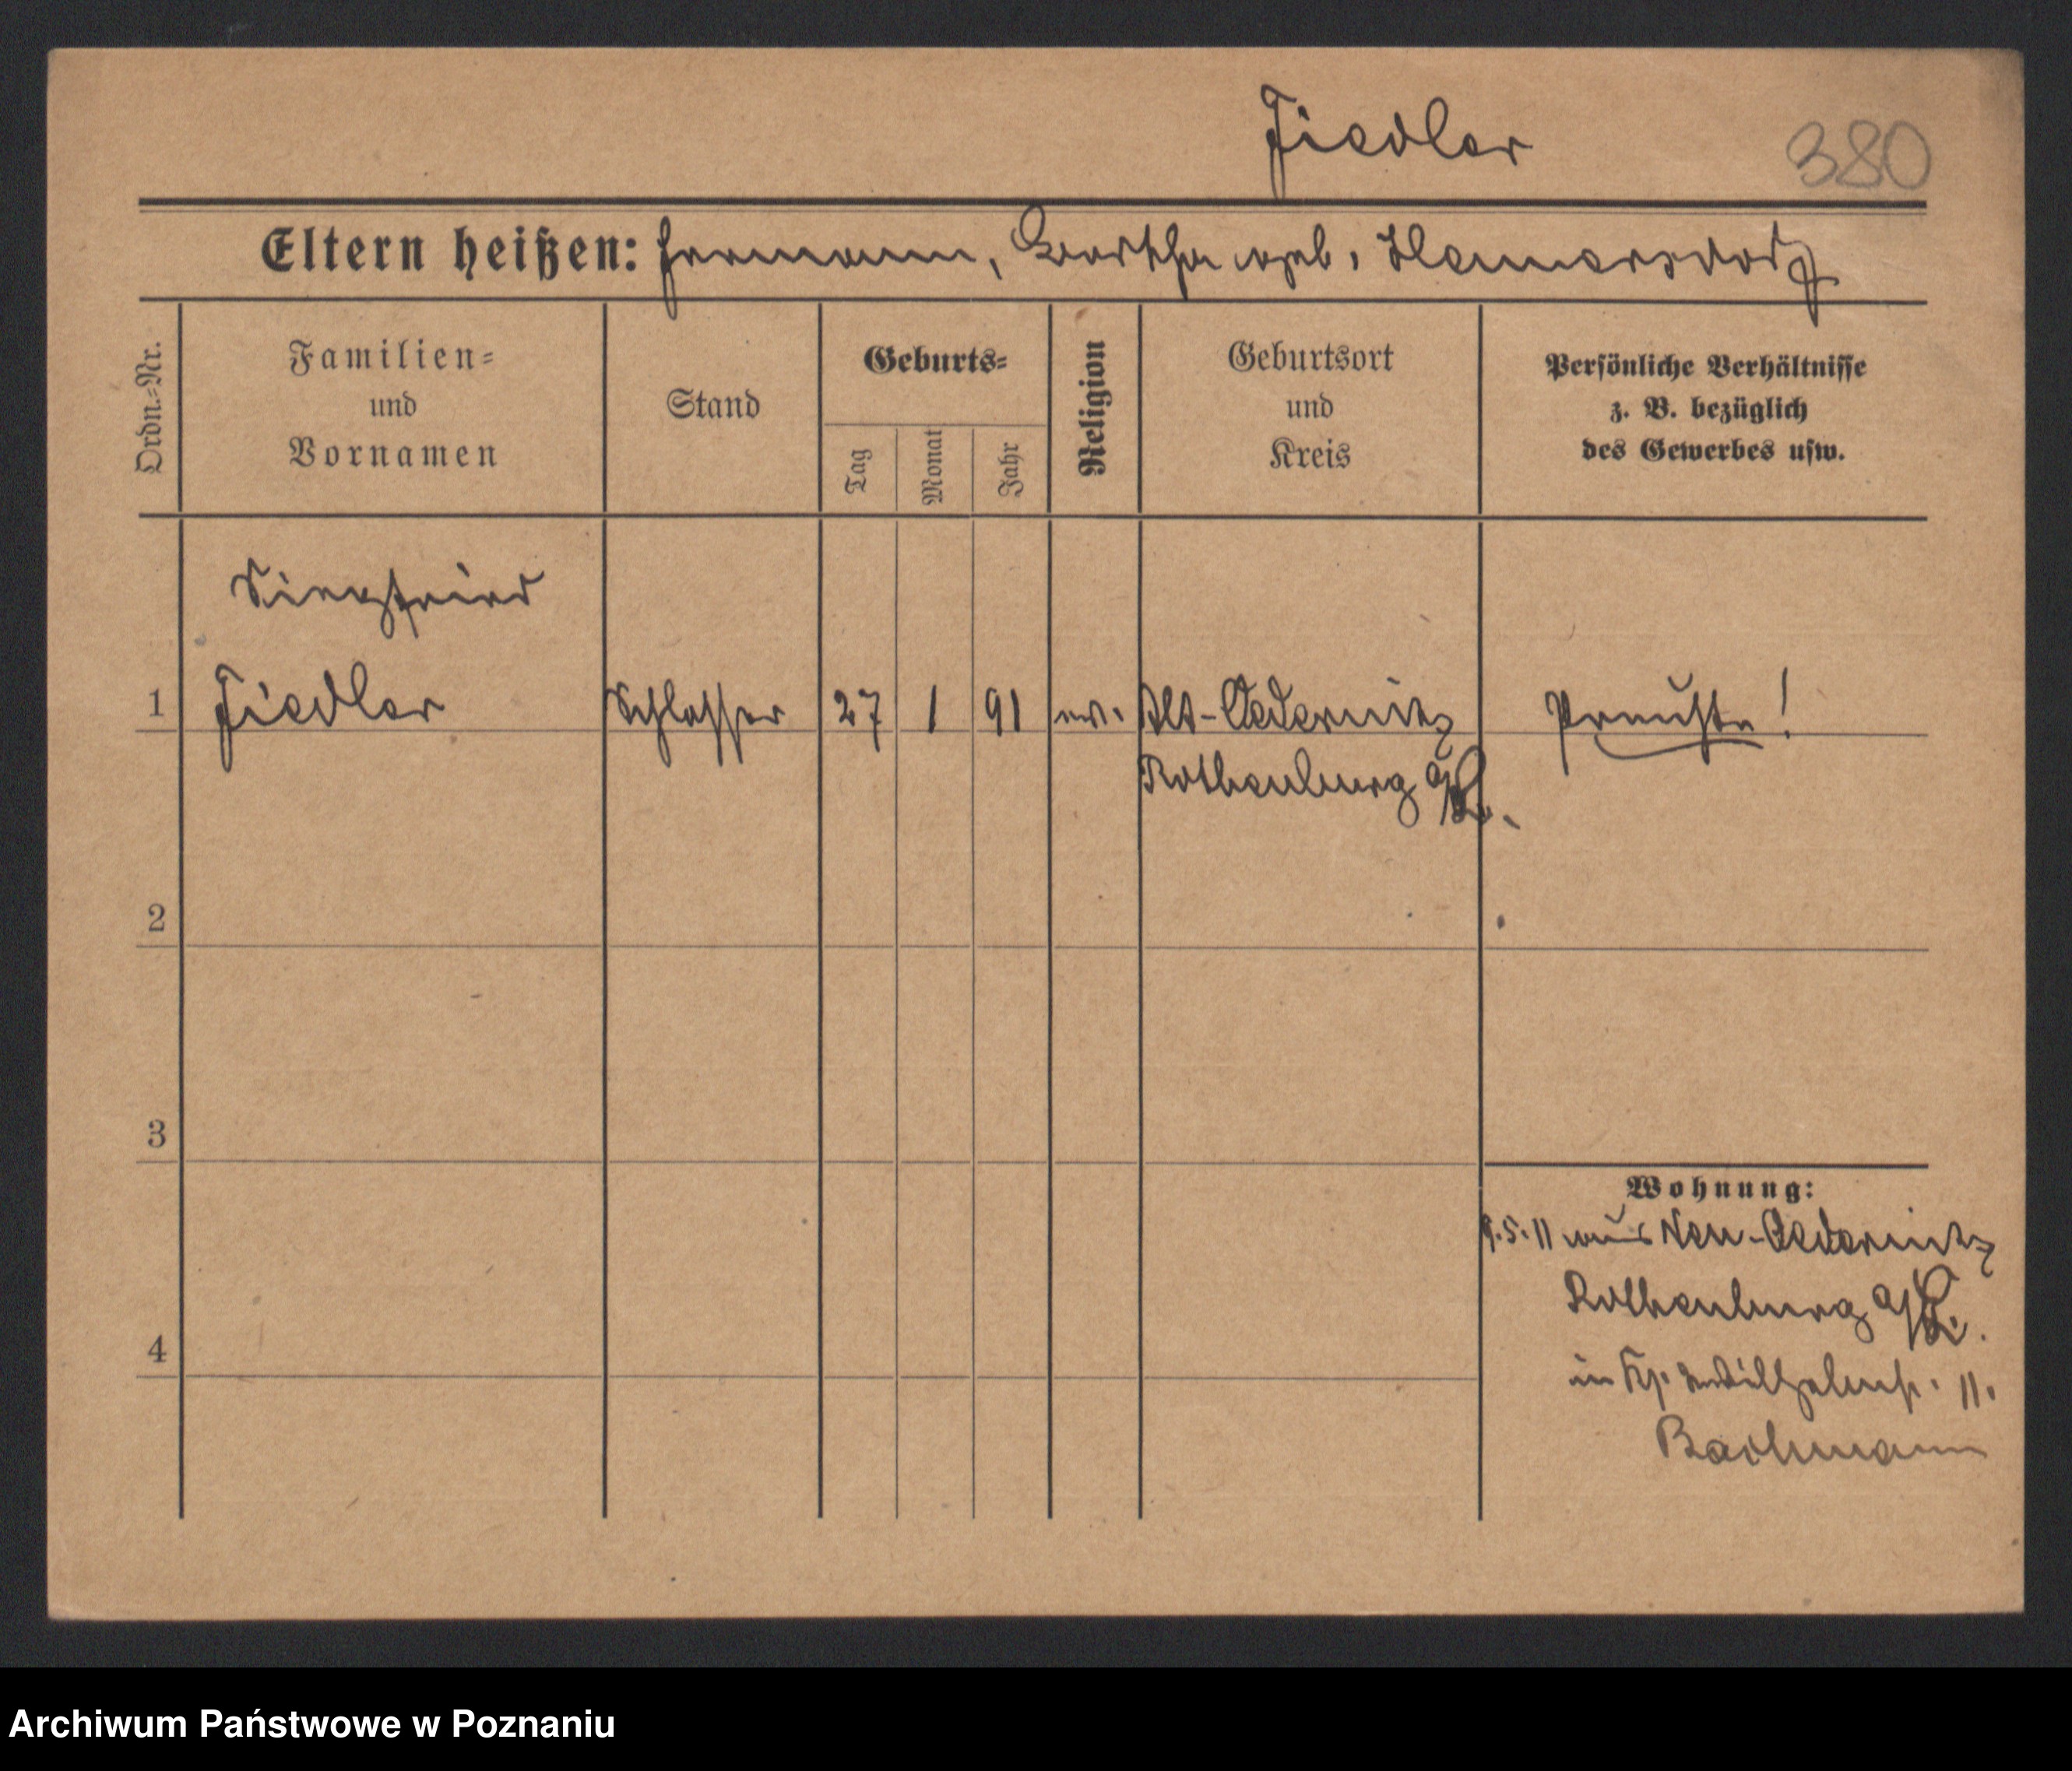 Fiedler
380
Eltern heißen: Hermann, Bertha geb. Hennersdorf
Ordn.-Nr.
Familien-
und
Vornamen
Stand
Geburts-
Tag
Monat
Jahr
Religion
Geburtsort
und
Kreis
Persönliche Verhältnisse
z. B. bezüglich
des Gewerbes usw.
Siegfried
1 Fiedler Schlosser 27 1 91 ev. Alt-Oedernitz Preuße!
Rothenburg O/L.
2
3
4
Wohnung:
9.5.11 aus Neu-Oedernitz
Rothenburg O/L.
in 11.
Bachmann
Archiwum Państwowe w Poznaniu